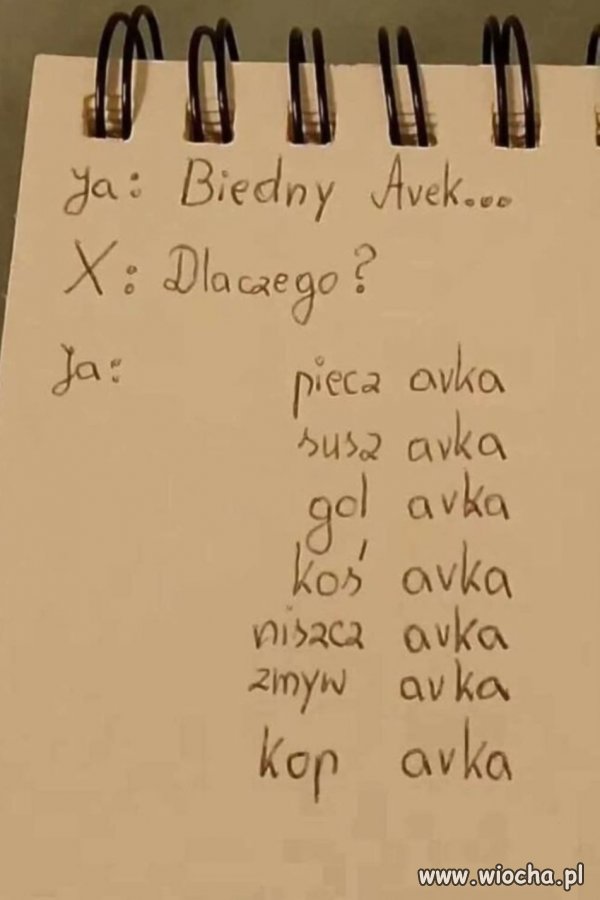 Ja: Biedny Avek...
X: Dlaczego?
Ja: piecz avka
susz avka
gol avka
koś avka
niszcz avka
zmyw avka
kop avka
www.wiocha.pl